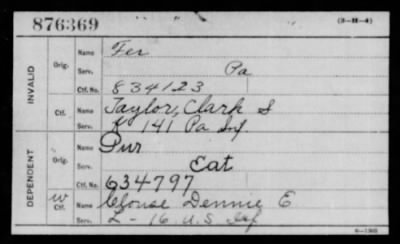 876369 (3-H-4)
INVALID
Orig. Name Fer
Serv. Pa
Ctf. No. 834123
Ctf. Name Taylor, Clark S
Serv. K 141 Pa Inf
DEPENDENT
Orig. Name Pur
Serv. Cat
Ctf. No. 634797
W Ctf. Name Clouse Dennie E
Serv. L - 16 U.S Inf